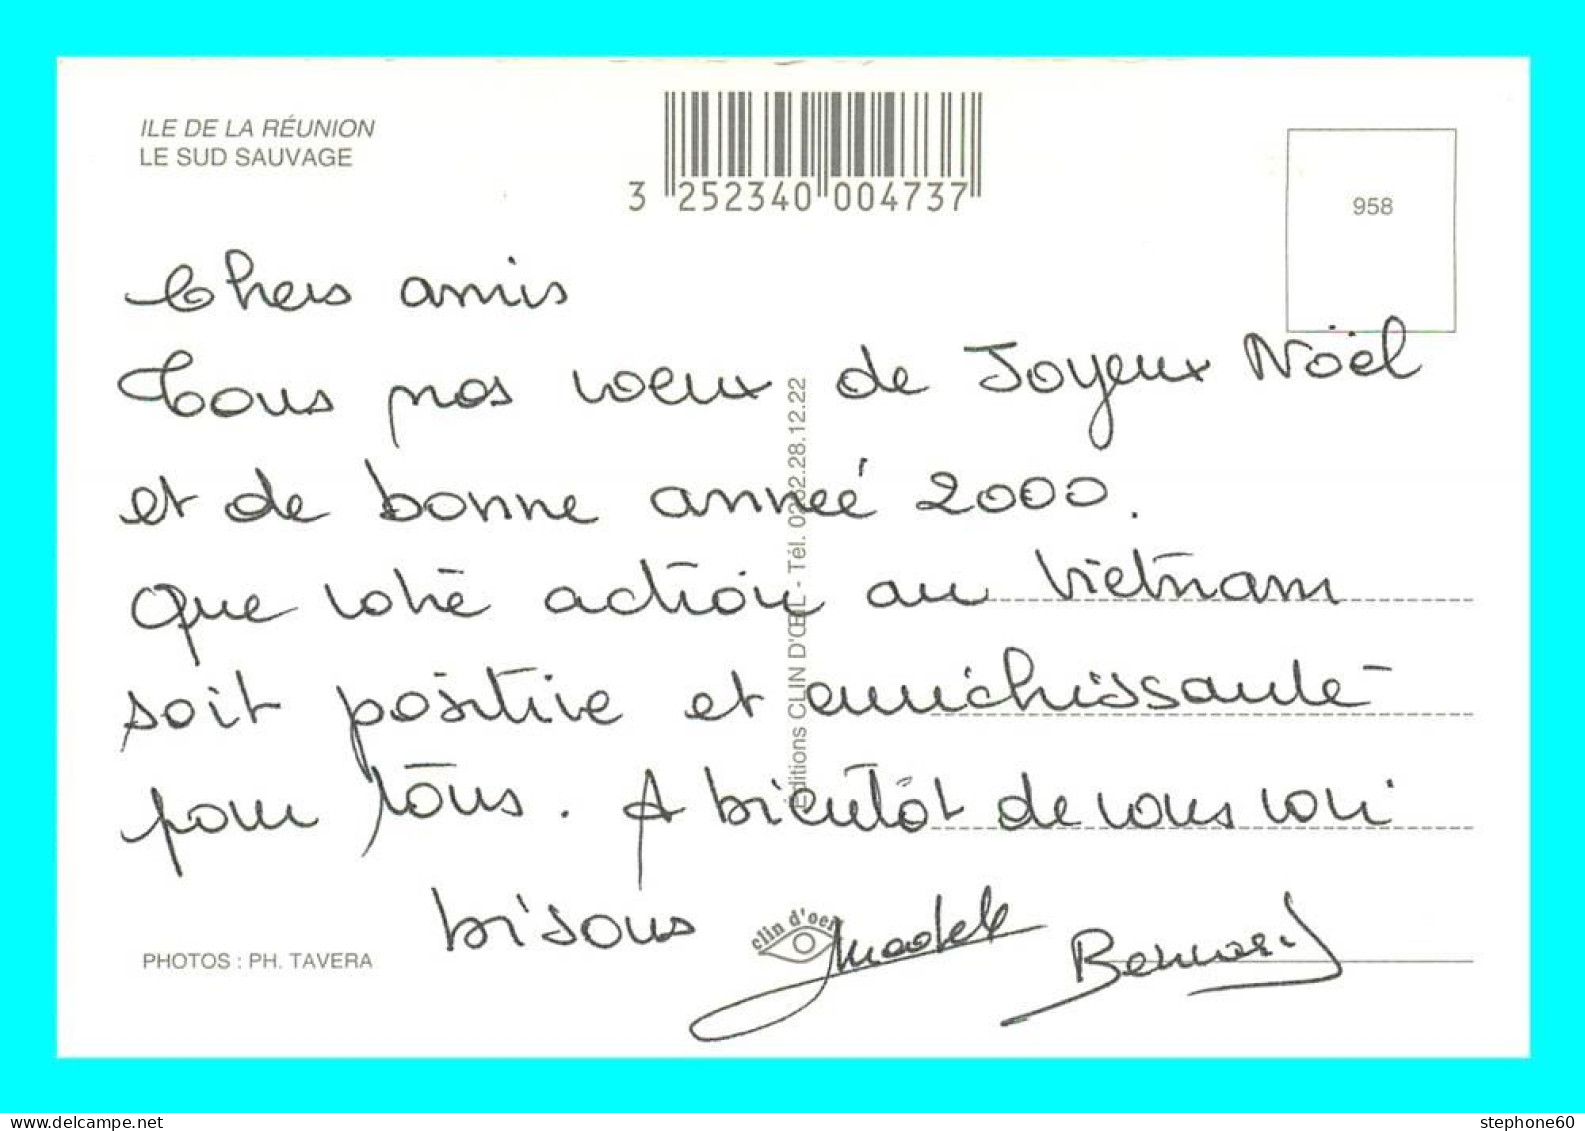 ILE DE LA RÉUNION
LE SUD SAUVAGE
3 252340 004737
958
Chers amis
Tous nos voeux de Joyeux Noël
et de bonne anneé 2000.
Que votre action au Vietnam
soit positive et enrichissante
pour tous. A bientôt de vous voir
bisous
Bernard
Éditions CLIN D'ŒIL - Tél. 0262.28.12.22
clin d'oeil
PHOTOS : PH. TAVERA
www.delcampe.net
stephone60